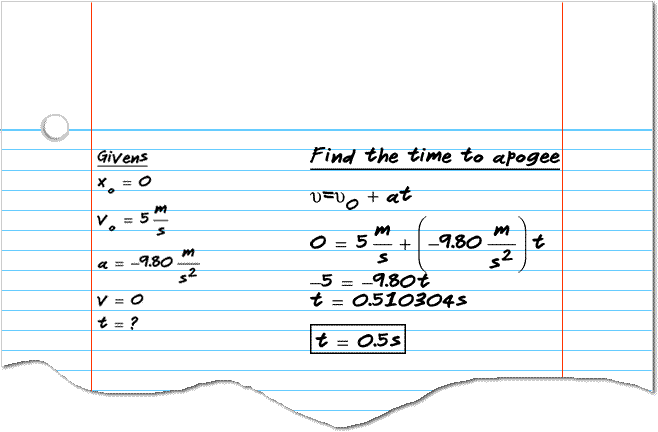 Givens
x₀ = 0
v₀ = 5 m/s
a = -9.80 m/s²
v = 0
t = ?
Find the time to apogee
υ=υ₀ + at
0 = 5 m/s + (-9.80 m/s²) t
-5 = -9.80t
t = 0.510304s
t = 0.5s